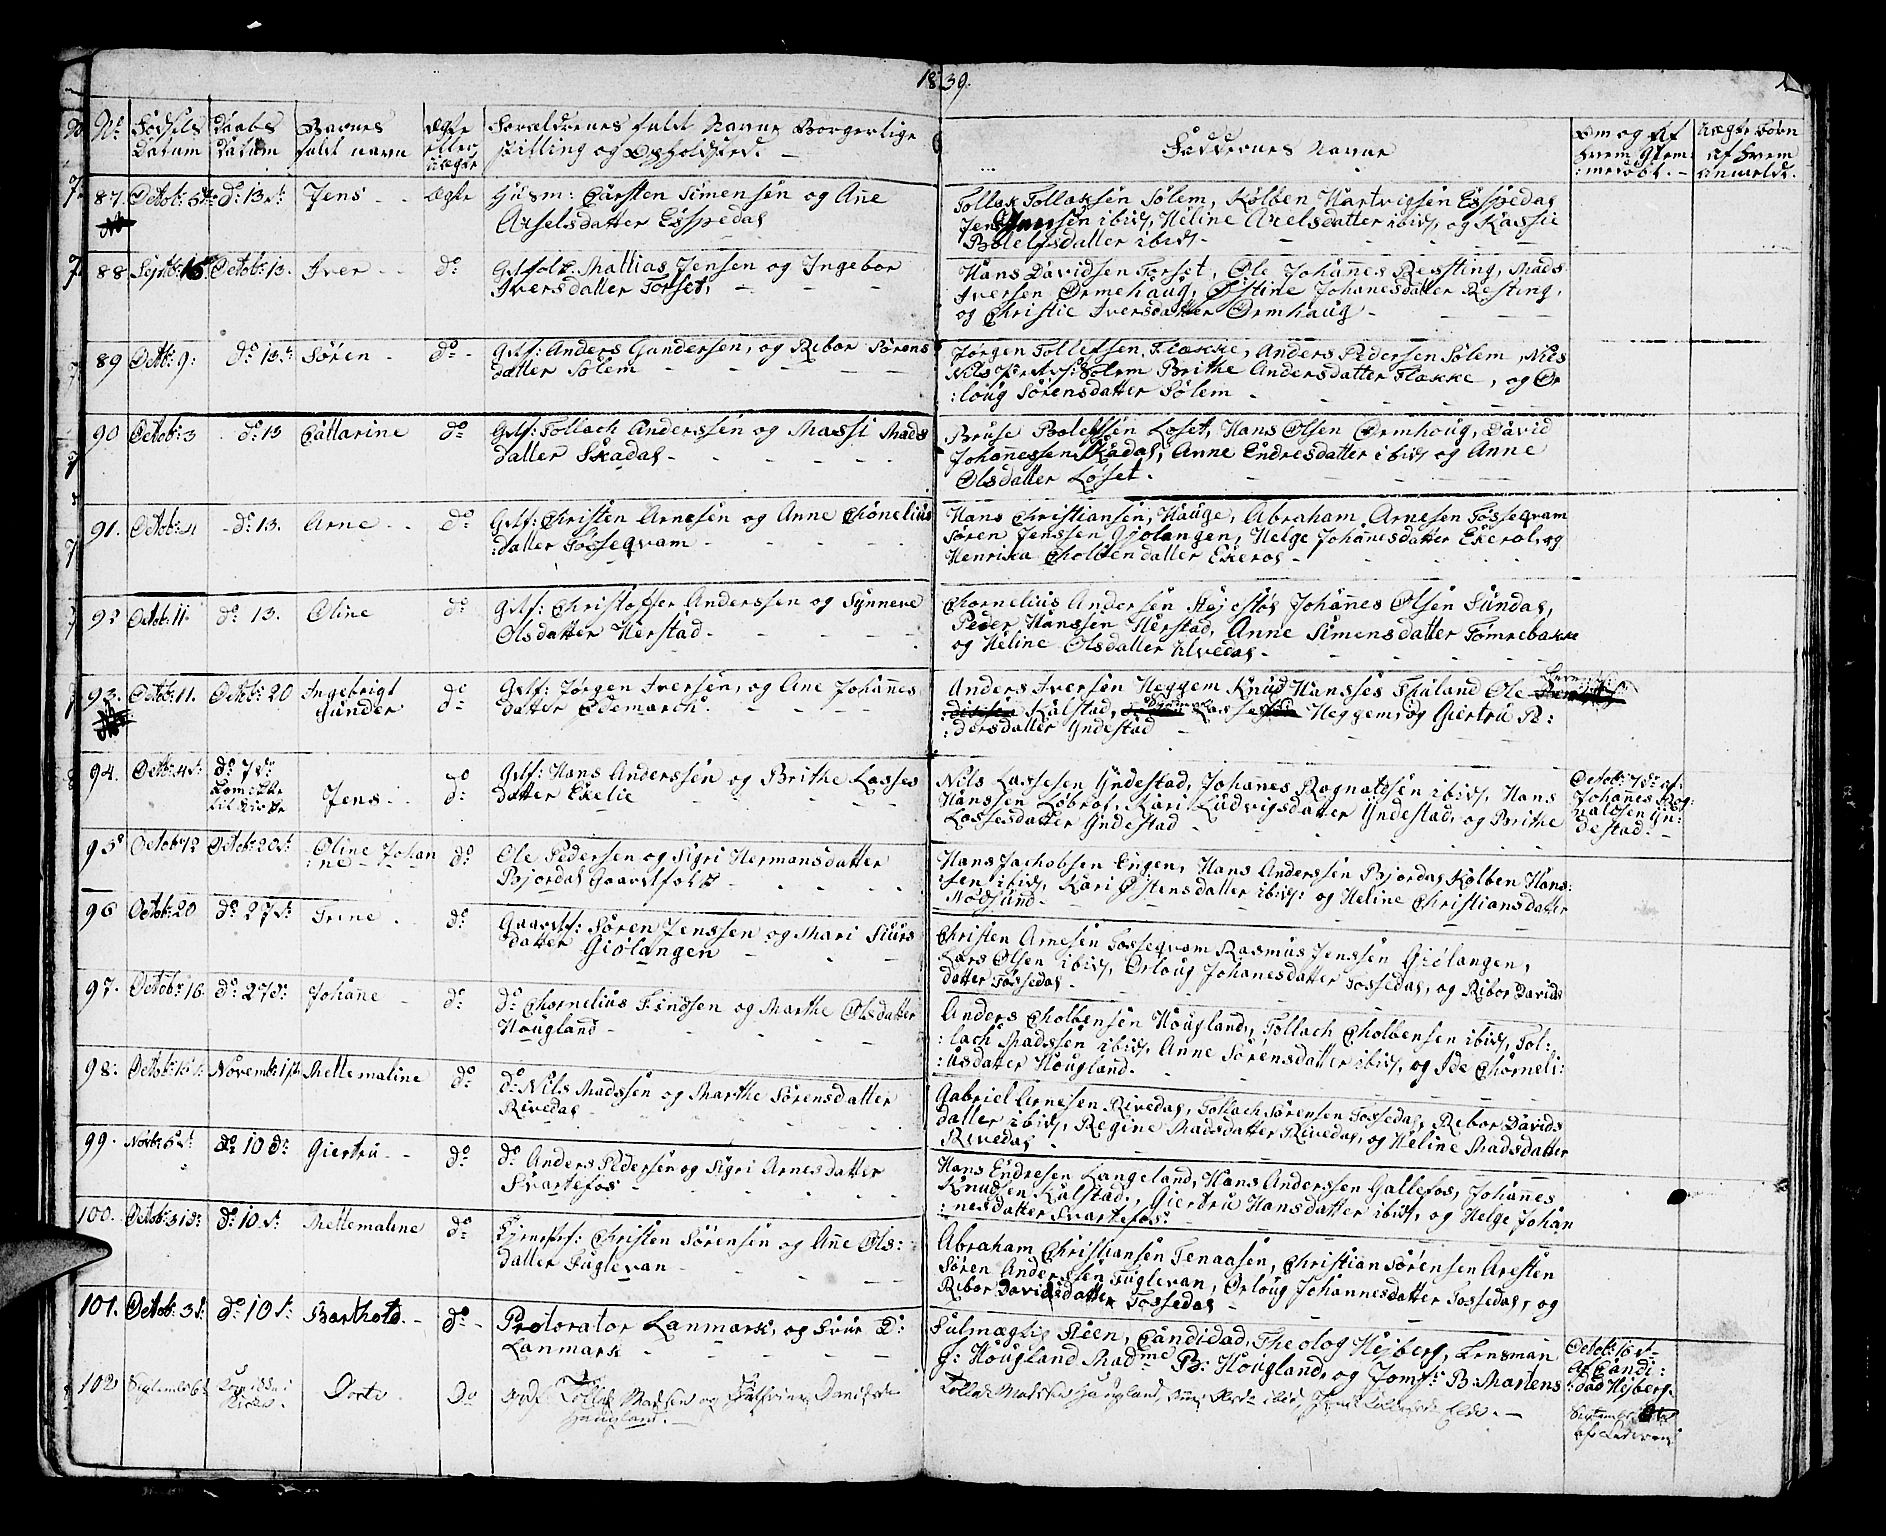 1839.
No. Fødsels Datum Daabs Datum Barnets fuldt navn ægte eller uægte Forældrenes fuldt Navne Borgerlige stilling og Opholdsted. Faddernes Navne Om og af hvem hjemmedøbt. Uægte børn af hvem anmeldt.
87. Octob: do 13 Jens ægte Husm: Carsten Simensen og Ane
Axselsdatter Espedal
Tollak Tollaksen Solem, Kolben Hartvigsen Espedal
Jens Hansen ibid, Heline Axelsdatter ibid, og Kassie
Bolelfsdatter ibid
88 Septb: 15 Octob: 13. Iver do Grdfolk Mattias Jensen og Ingebor
Iversdatter Torset,
Hans Davidsen Torset, Ole Johannes Resting, Mads
Iversen Ormehaug, Østine Johanesdatter Resting,
og Christie Iversdatter Ormhaug
89 Octb: 9: do 13 Søren do Grdf: Anders Gundersen, og Ribor Sørens
datter Solem
Jørgen Tollefsen Flække, Anders Pedersen Solem, Nils
Nils Solem Brithe Andersdatter Flække, og Or
:loug Sørensdatter Solem
90 Octob: 3 do 13 Cattarine do Grdf: Tollach Anderssen og Massi Mads
datter Skadal
Bruse Bolefsen Loset, Hans Olsen Ormhoug, David
Johanessen Skadal, Anne Endresdatter ibid og Anne
Olsdatter Løset.
91. Octob: 4 do 13. Arne do Grdf: Christen Arnesen og Anne Chonelius
:datter Fosseqvam
Hans Christiansen, Hauge, Abraham Arnesen Fosseqvam
Søren Jenssen Gjolangen, Helge Johanesdatter Ekerol, og
Henrika Cholbendatter Ekerol
92 Octob: 11. do 13. Oline do Grdf: Christoffer Anderssen og Synneve
Olsdatter Herstad
Chornelius Andersen Johannes Olsen Sundal,
Peder Hanssen Herstad, Anne Simensdatter Tømrebakke
og Heline Olsdatter
93. Octob: 11. Octob: 20 Ingebrigt
Gunder do Grdf: Jørgen Iversen, og Ane Johannes
datter Edemarch
Anders Iversen Heggem Knud Hansses Ole
Kalstad, Heggem, og Giertru Pe:
:dersdatter Yndestad
94. Octob: 4 do 7
Kom ikke
til Kirke Jens do Grdf: Hans Anderssen og Brithe Lasses
datter Ekelie
Nils Lassesen Yndestad, Johannes Rognaldsen ibid, Hans
Hanssen Løbrol, Kari Ludvigsdatter Yndestad, og Brithe
Lassesdatter Yndestad
Octob: 7 af
Johanes Rog:
naldsen Yn:
destad.
95 Octob 12 Octob: 20 Oline Johan
:ne do Ole Pedersen og Sigri Hermansdatter
Bjordal Gaardfolk
Hans Jachobsen Engen, Hans Anderssen Bjordal Kolben Hans:
sen ibid, Kari Østensdatter ibid: og Heline Christiansdatter
Nødsund
96 Octob: 20 do 27 Trine do Gaardf: Søren Jenssen og Mari Siurs
datter Giolangen
Christen Arnesen Fosseqvam Rasmus Jenssen Giolangen,
Lars Olsen ibid, Orloug Johanesdatter Fossedal, og Ribor Davids
datter Fossedal
97. Octob: 16. do 27 Johane do do Chornelius Findsen og Marthe Olsdatter
Hougland
Anders Cholbensen Hougland, Tollach Cholbensen ibid, Tol:
:lach Madssen ibid, Anne Sørensdatter ibid, og Ide Chorneli:
:usdatter Hougland.
98: Octob: Novemb: 1 Mettemaline do do Nils Madssen og Marthe Sørensdatter
Rivedal
Gabriel Arnesen Rivedal, Tollach Sørensen Fossedal, Ribor Davids
datter ibid, Regine Madsdatter Rivedal, og Heline Madsdatter
Rivedal
99. Novb: 6 do 10 Giertru do do Anders Pedersen og Sigri Arnesdatter
Svartefos
Hans Endresen Langeland, Hans Anderssen Gallefos, Johannes
Knudsen Kalstad, Giertru Hansdatter ibid, og Helge Johan
:nesdatter Svartefos:
100. Octob: 31 do 10 Mettemalene do Christen Sørensen og Ane Ols:
datter Fuglevan
Abraham Christiansen Tenaasen, Christian Sørensen Aresten
Søren Anderssen Fuglevan, Orloug Johannesdatter Fossedal, og
Ribor Davidsdatter Fossedal
101. Octob: 3 do 10 Barthold do Protorator Lanmark, og Frue D:
Lanmark
Fulmægtig Steen, Candidad Theolog Hejberg, Lensman
G: Hougland Madme B: Hougland, og Jomf: B: Martens
Octob: 16
Af Candi:
:dad Hejberg.
102 September 6 Dorte Do Grdf Tollak Madsen og
Haugland.
Tollak Madsen Haugland,
September